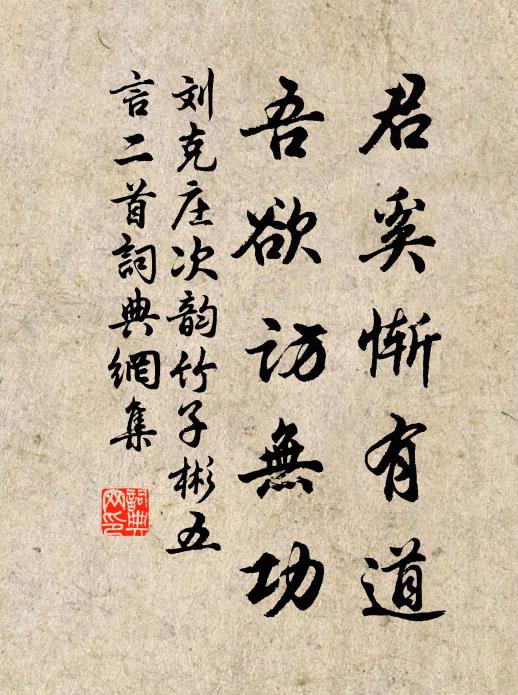 君奚惭有道
吾欲访無功
刘克庄次韵竹子彬五
言二首詞典網集
詞典
网印